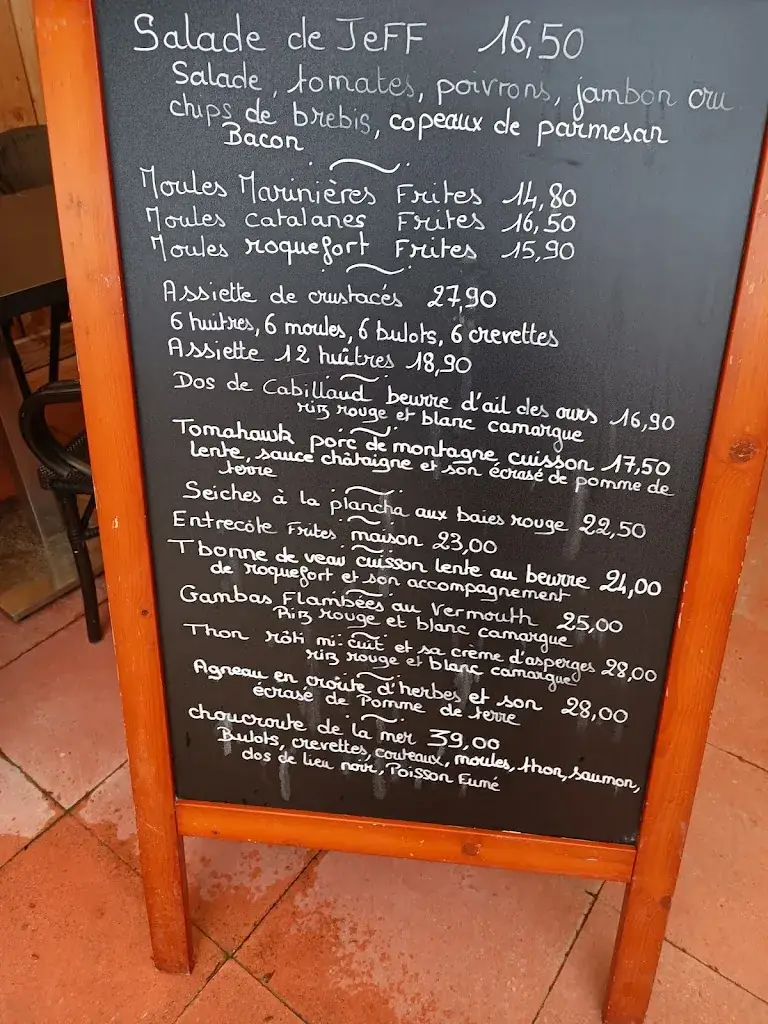 Salade de JeFF 16,50
Salade, tomates, poivrons, jambon cru
chips de brebis, copeaux de parmesan
Bacon
Moules Marinières Frites 14,80
Moules catalanes Frites 16,50
Moules roquefort Frites 15,90
Assiette de crustacés 27,90
6 huitres, 6 moules, 6 bulots, 6 crevettes
Assiette 12 huîtres 18,90
Dos de Cabillaud beurre d'ail des ours 16,90
riz rouge et blanc camargue
Tomahawk porc de montagne cuisson 17,50
lente, sauce châtaigne et son écrasé de pomme de
terre
Seiches à la plancha aux baies rouge 22,50
Entrecôte Frites maison 23,00
T bonne de veau cuisson lente au beurre 24,00
de roquefort et son accompagnement
Gambas Flambées au Vermouth 25,00
Riz rouge et blanc camargue
Thon rôti mi-cuit et sa crème d'asperges 28,00
riz rouge et blanc camargue
Agneau en croute d'herbes et son 28,00
écrasé de Pomme de terre
choucroute de la mer 39,00
Bulots, crevettes, couteaux, moules, thon, saumon,
dos de lieu noir, Poisson Fumé